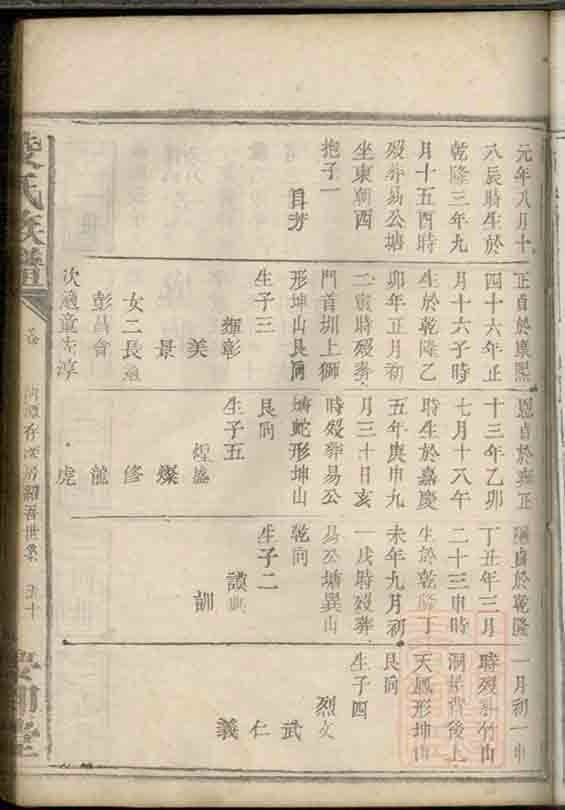 元年八月十
八辰時生於
乾隆三年九
月十五酉時
歿葬易公塘
坐東朝酉
抱子一
昌芳
正貞於康熙
四十六年正
月十六子時
生於乾隆乙
卯年正月初
二寅時歿葬
門首圳上獅
形坤山艮向
生子三
耀彰
美
景
女二長適
彭昌會
次適童
恩貞於雍正
十三年乙卯
七月十八午
時生於嘉慶
五年庚申九
月三十日亥
時歿葬易公
塘蛇形坤山
艮向
生子五
煌盛
燦
修
龍
虎
於乾隆
丁丑年三月
二十三申時
生於乾隆丁
未年九月初
一戌時歿葬
易公塘巽山
乾向
生子二
謨典
訓
一月初一申
時歿葬竹山
洞背後上
天鳳形坤山
艮向
生子四
烈文
武
仁
義
氏族譜
卷
世系 五十